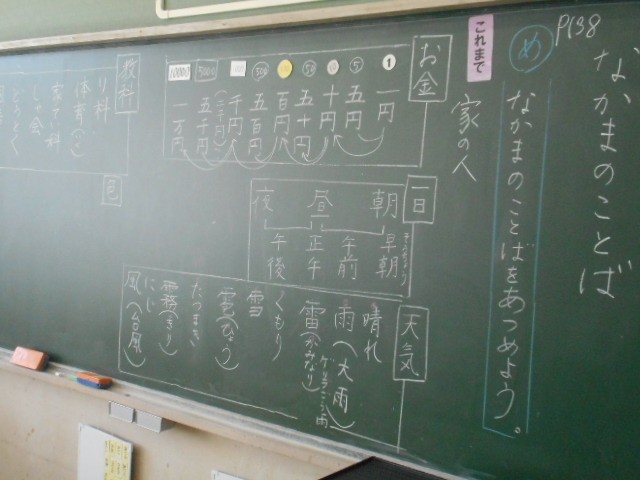 P138
なかまのことば
め
なかまのことばをあつめよう。
これまで
家の人
お金
1
一円
5
五円
10
十円
50
五十円
100
百円
500
五百円
千円
(二千円)
5000
五千円
10000
一万円
一日
朝
昼
夜
早朝
午前
正午
午後
天気
晴れ
雨(大雨)
ゲリラごう雨
雷(かみなり)
くもり
雪
雹(ひょう)
たつまき
霧(きり)
にじ
風(台風)
教科
り科
体育
家てい科
しゃ会
どうとく
色